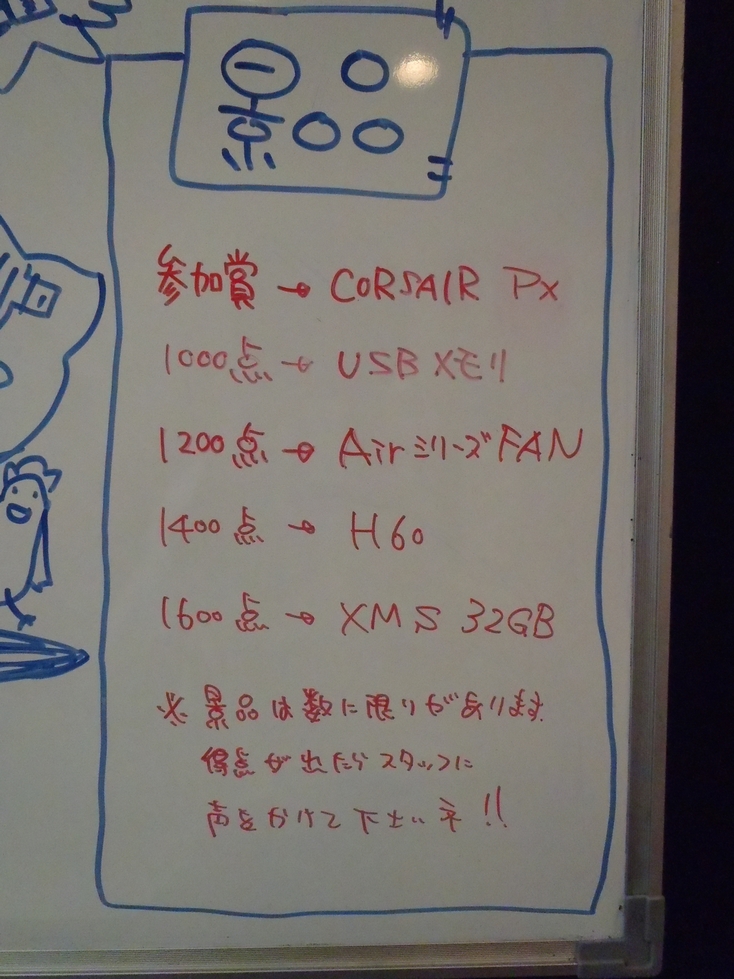 景品
参加賞→CORSAIR Px
1000点→USBメモリ
1200点→AirシリーズFAN
1400点→H60
1600点→XMS 32GB
※景品は数に限りがあります
得点が出たらスタッフに
声をかけて下さいネ!!